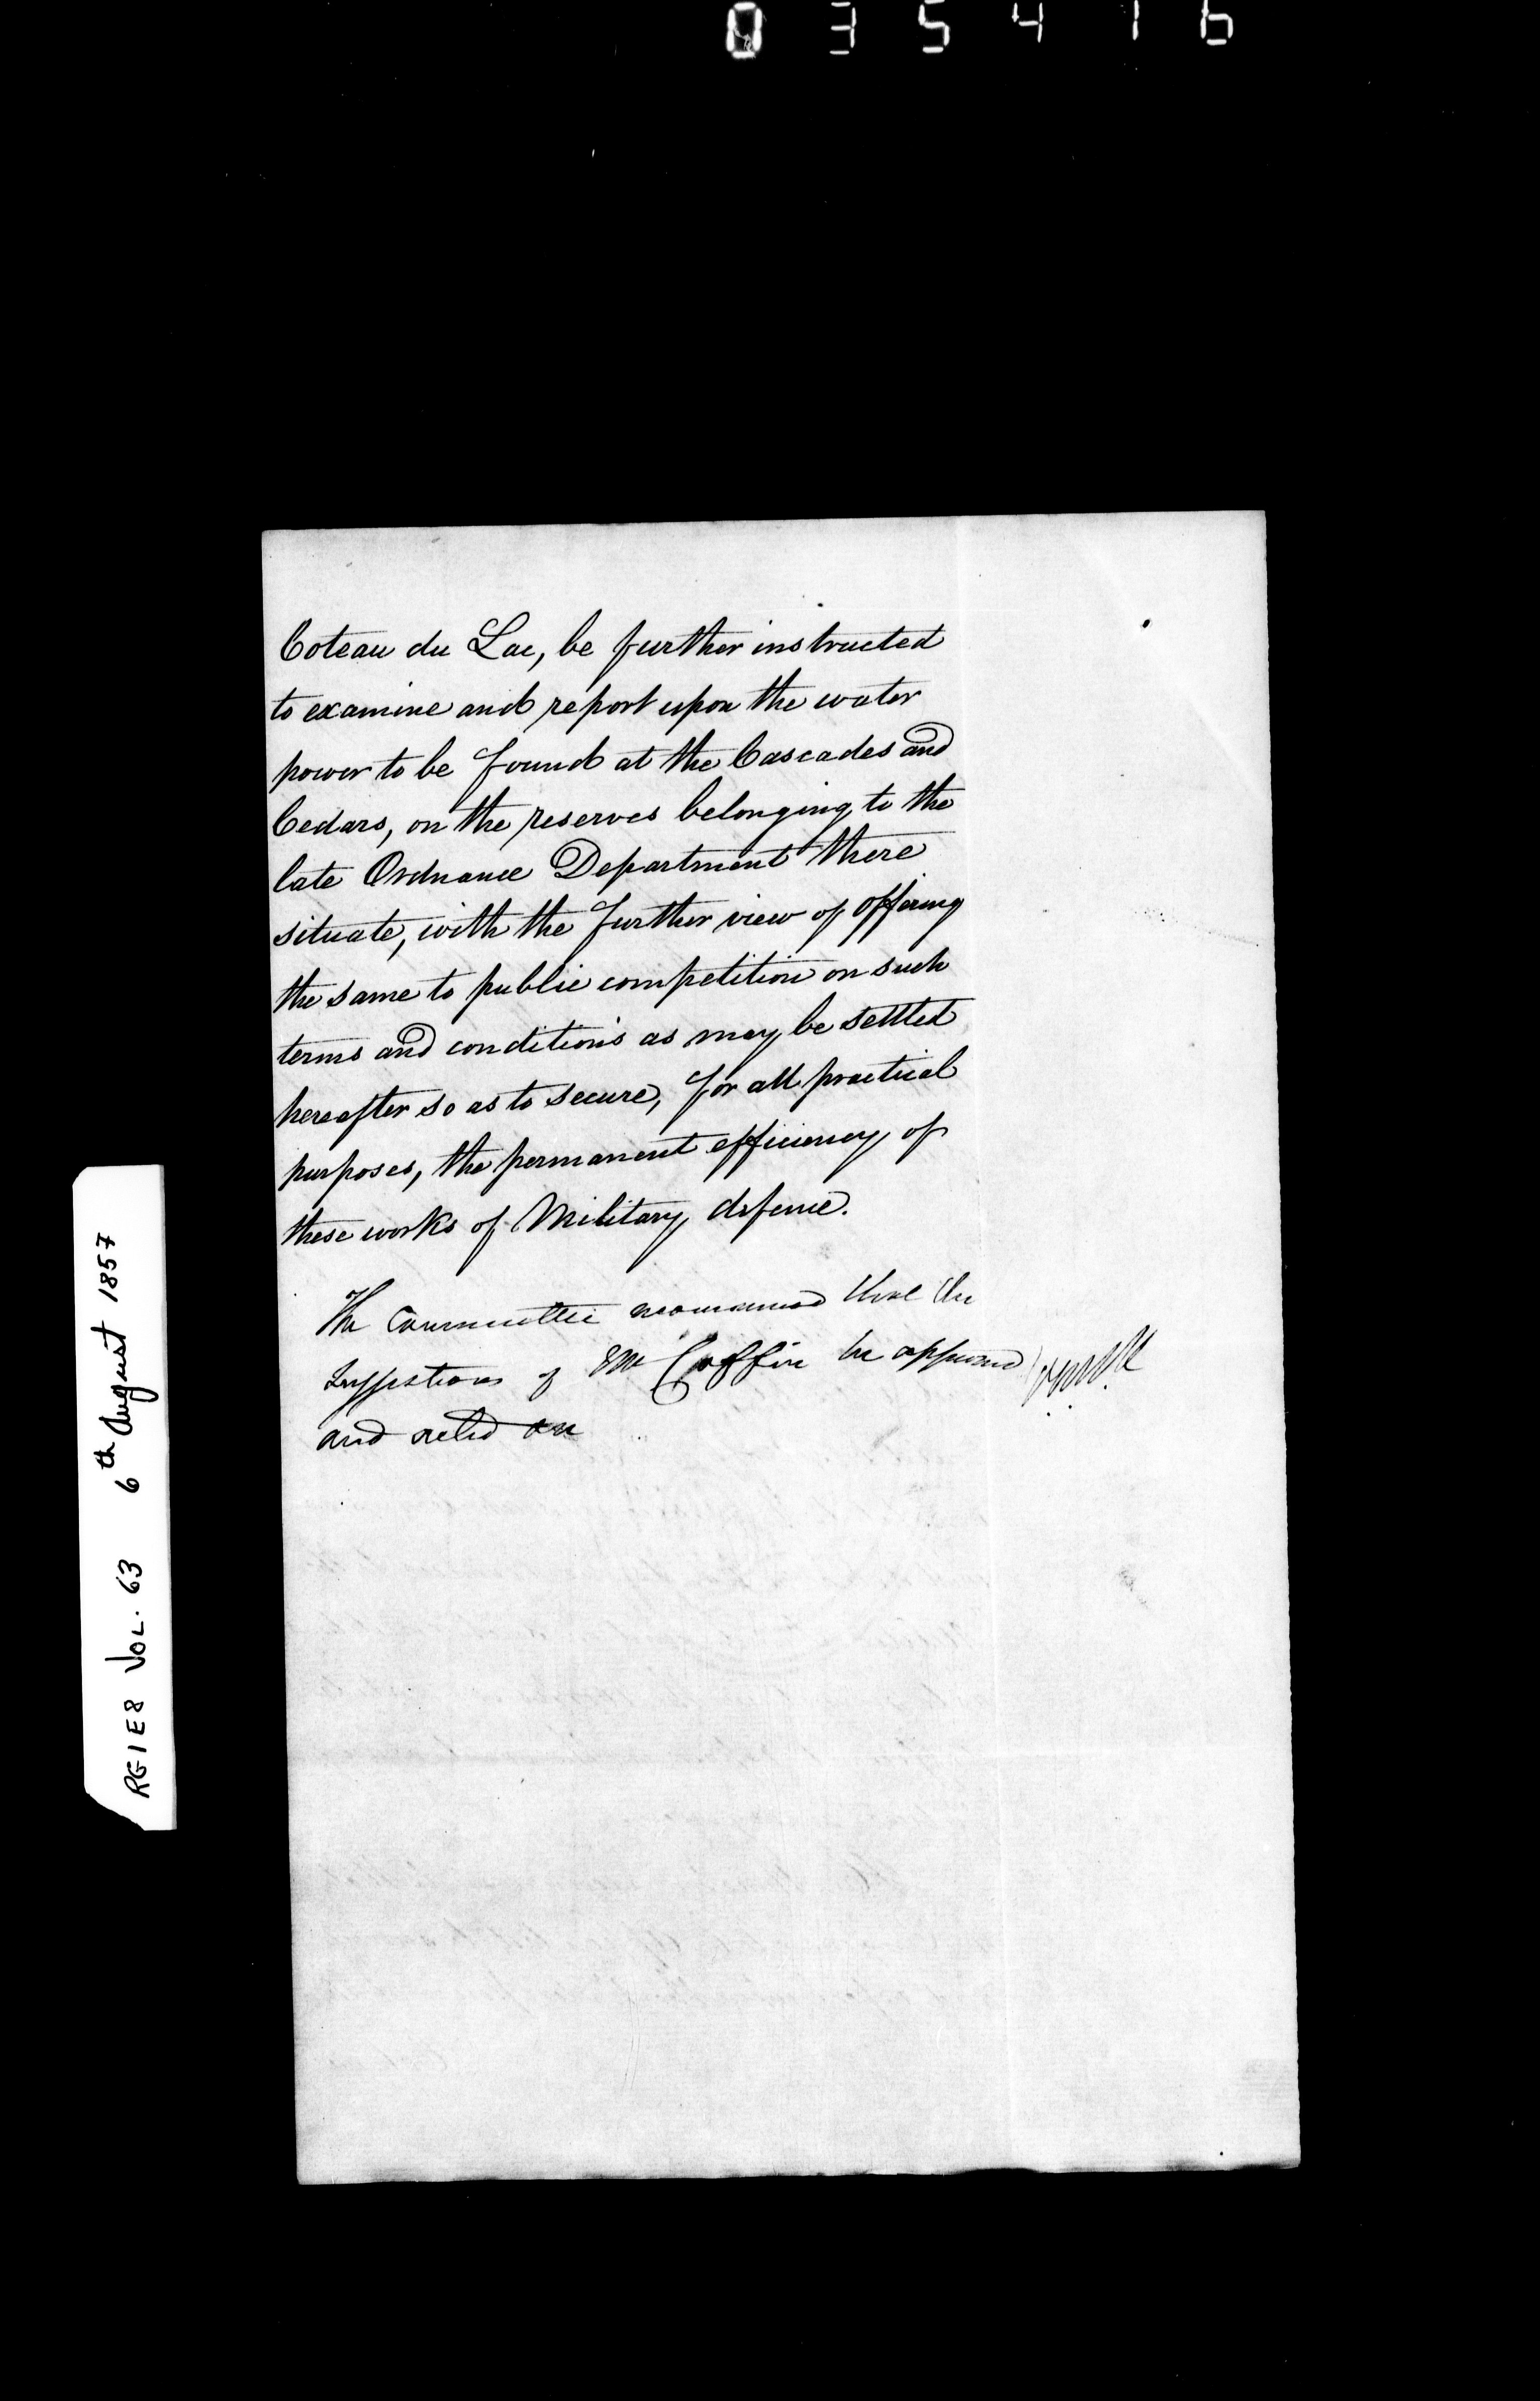 035416
Coteau du Lac, be further instructed
to examine and report upon the water
power to be found at the Cascades and
Cedars, on the reserves belonging to the
late Ordnance Department there
situate, with the further view of offering
the same to public competition on such
terms and conditions as may be settled
hereafter so as to secure, for all practical
purposes, the permanent efficiency of
these works of Military defence.
The Committee recommend that the
suggestions of Mr Coffin be approved
and acted on
RG1E8 VOL. 63 6th August 1857